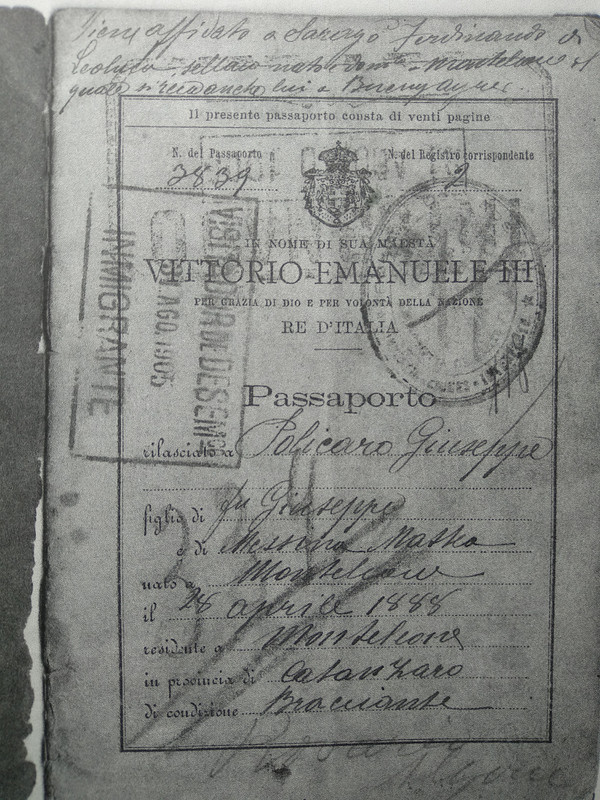 Viene affidato a Ferdinando di
nato e dom.to Monteleone il
quale si reca anche lui a Buenos Ayres.
Il presente passaporto consta di venti pagine
N. del Passaporto N. del Registro corrispondente
3839 2
IN NOME DI SUA MAESTÀ
VITTORIO EMANUELE III
PER GRAZIA DI DIO E PER VOLONTÀ DELLA NAZIONE
RE D'ITALIA
AGO. 1905
INMIGRANTE
Passaporto
rilasciato a Policaro Giuseppe
figlio di fu Giuseppe
e di Messina
nato a Monteleone
il 28 aprile 1888
residente a Monteleone
in provincia di Catanzaro
di condizione Bracciante